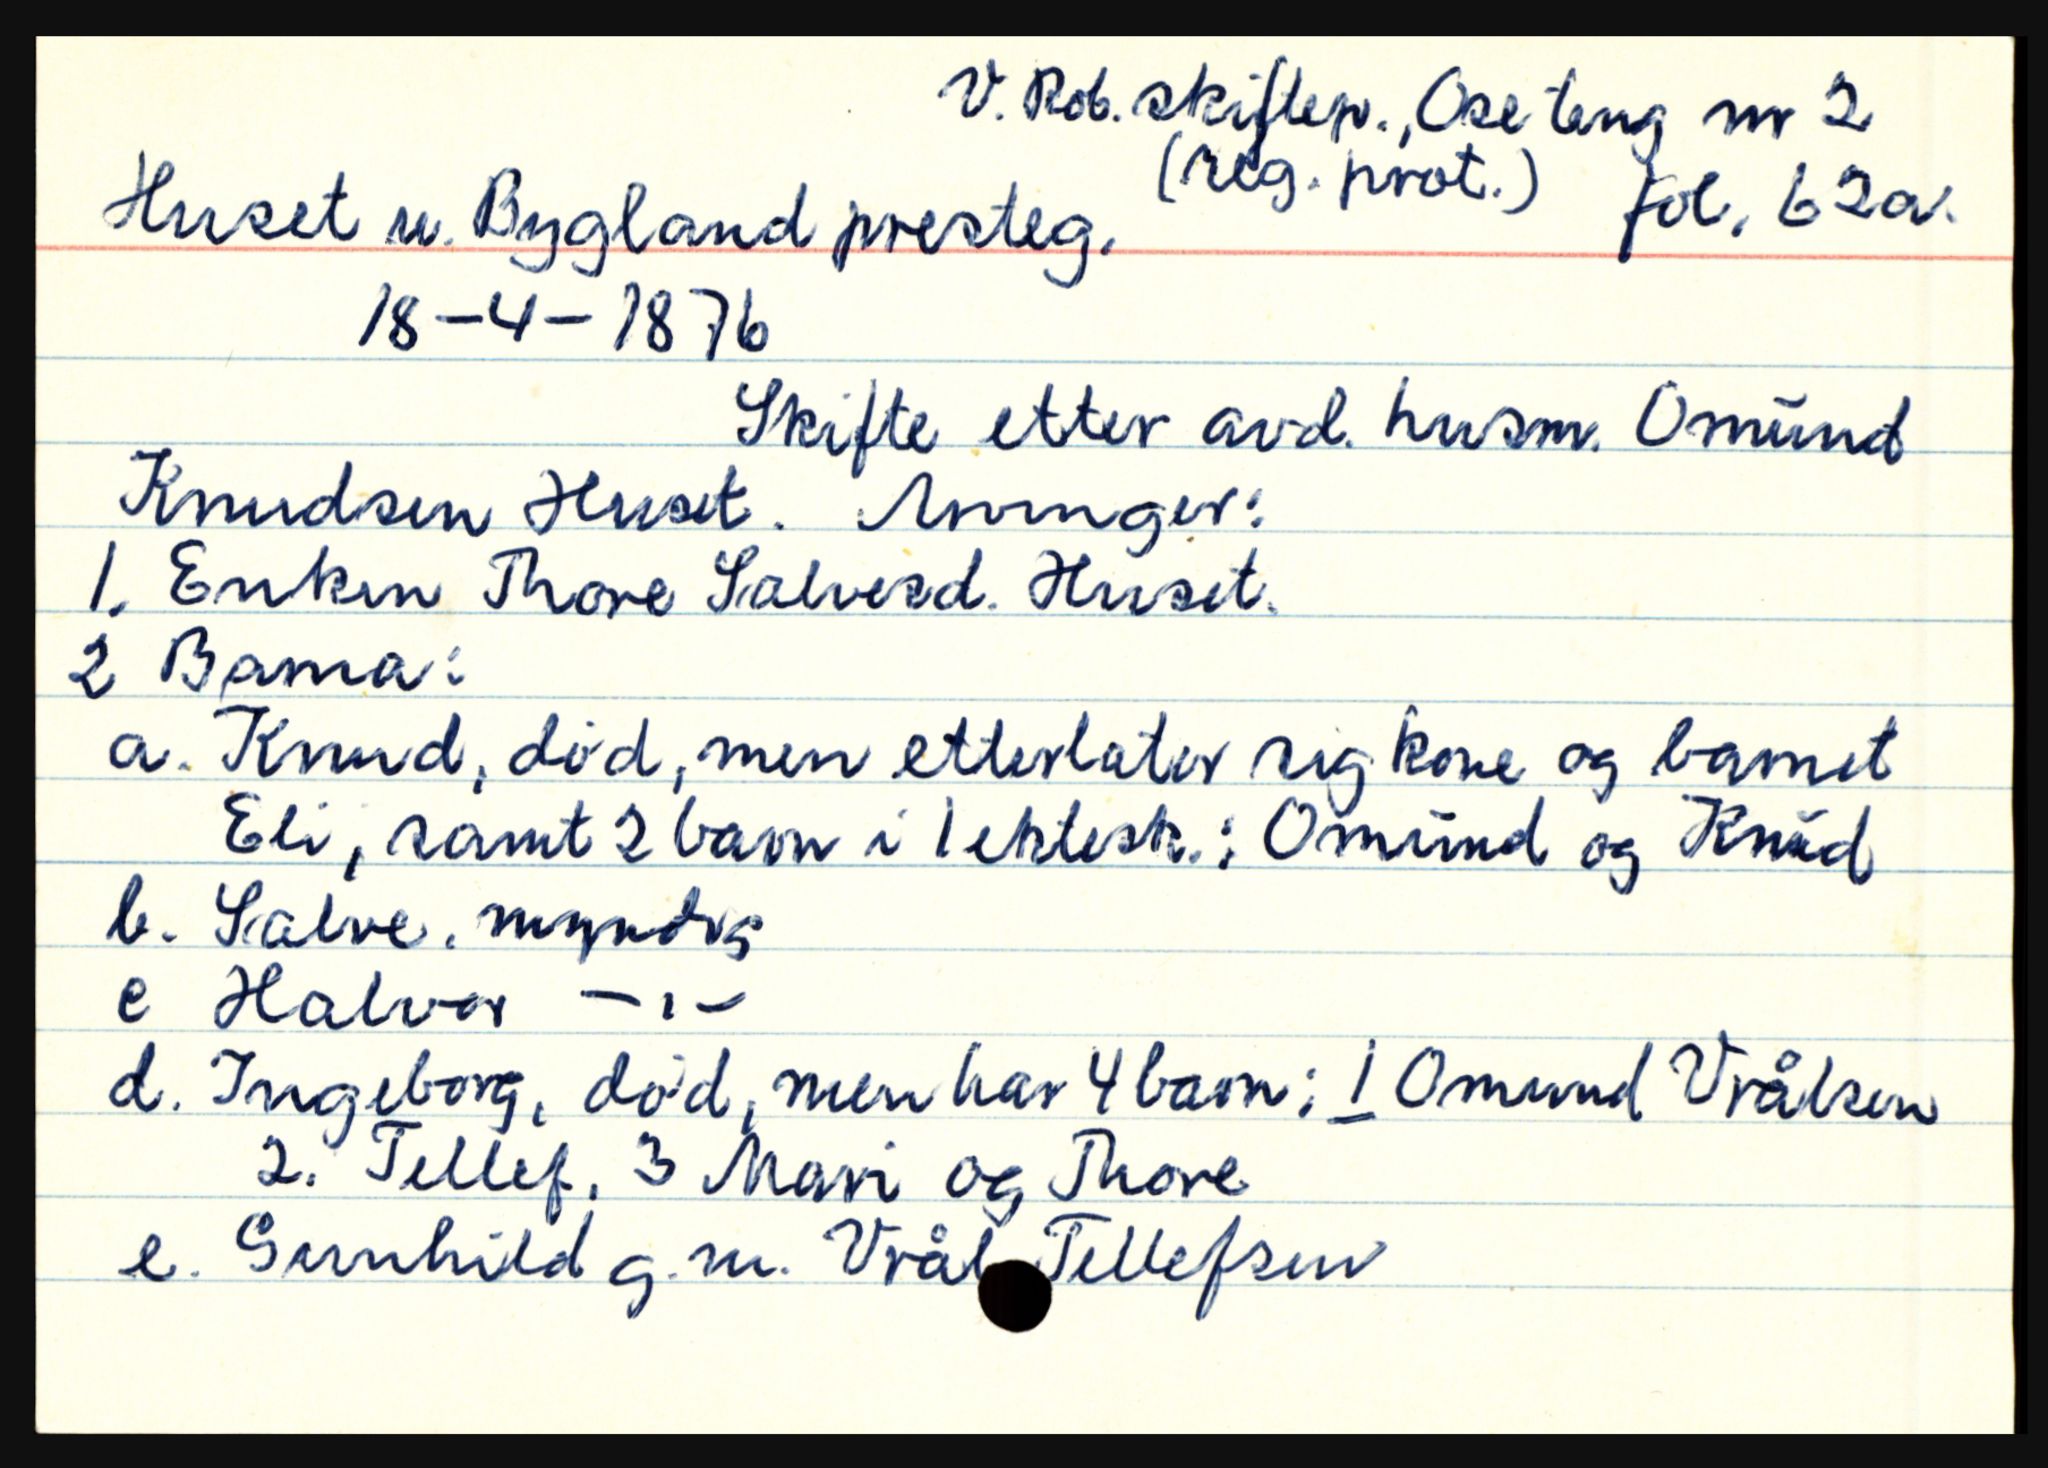 V. Rob. skiftep., Ose teng nr 2
(reg. prot.) fol. 62a.
Huset u. Bygland presteg.
18-4-1876
Skifte etter avd. husm. Omund
Knudsen Huset. Arvinger:
1. Enken Thore Salvesd. Huset.
2 Barna:
a. Knud, død, men etterlater sig kone og barnet
Eli, samt 2 barn i 1 ektesk.: Omund og Knud
b. Salve. myndig
c Halvor -"-
d. Ingeborg, død, men har 4 barn: 1 Omund Vrålsen
2. Tellef, 3 Mari og Thore
e. Gunhild g.m. Vrål Tellefsen